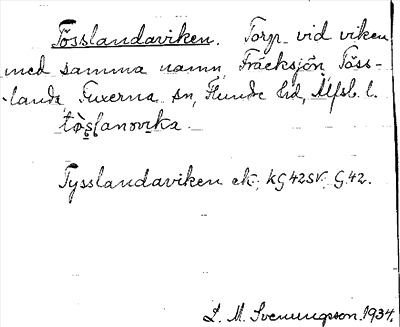 Tösslandaviken. Torp vid viken
med samma namn, Fräcksjön, Töss-
landa, Fuxerna sn, Flundre hd, Älfsb. l.
Tysslandaviken ek; kG42SV. G.42.
L. M. Svenungsson. 1934.